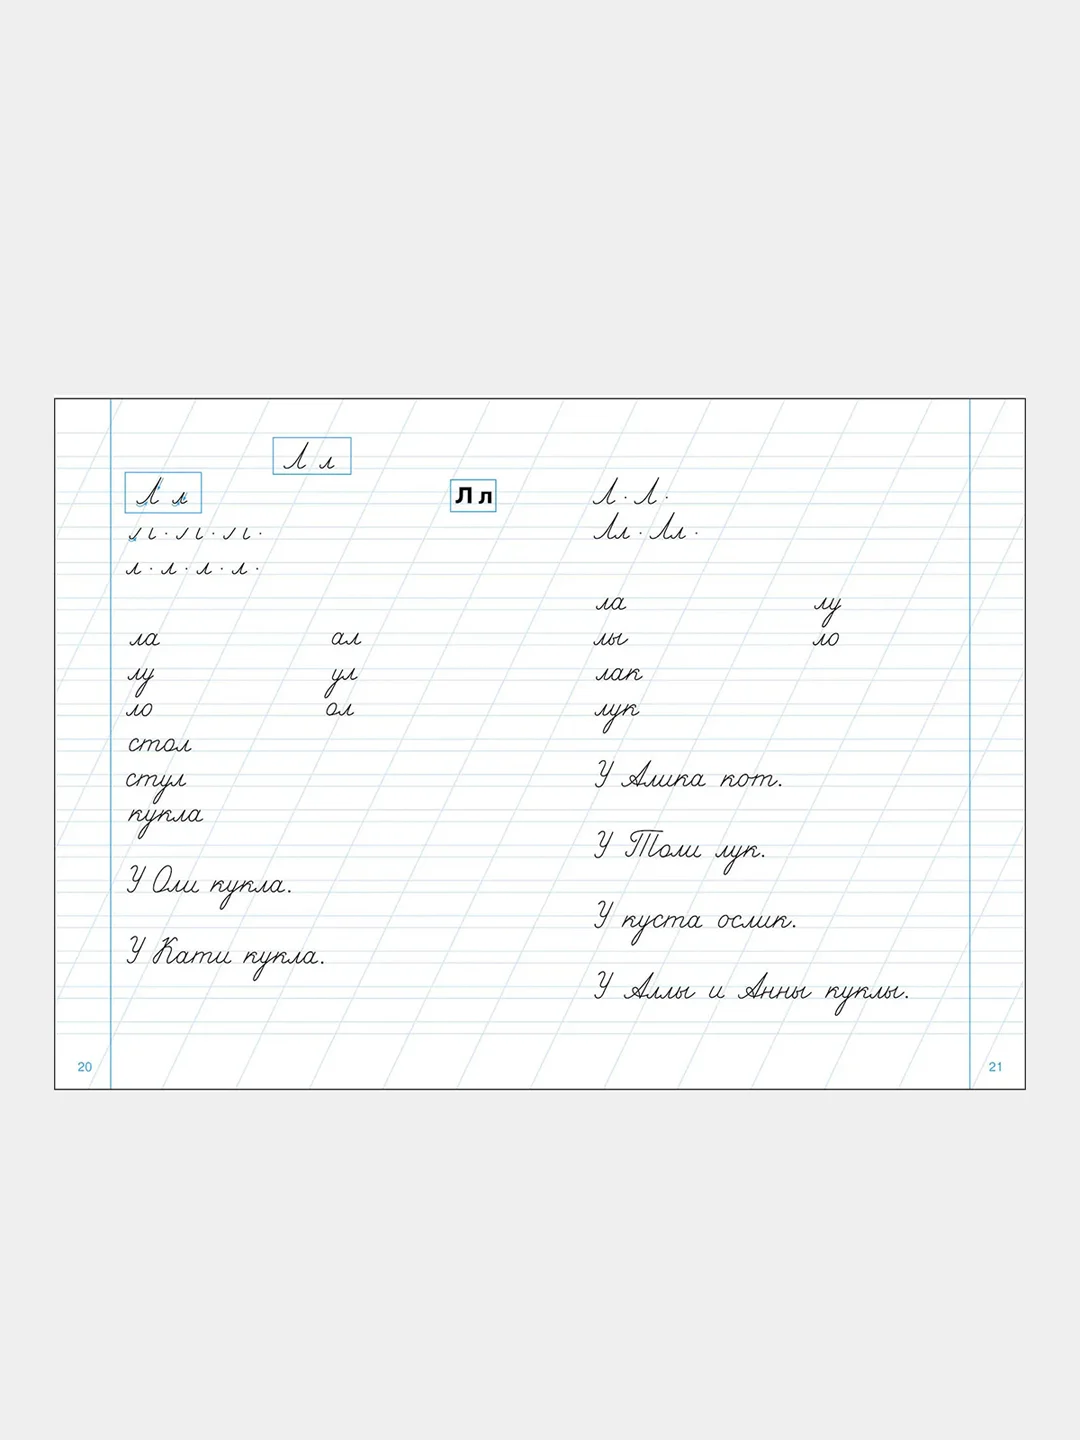 Л л
Л л
Л л
л · л · л ·
ла ал
лу ул
ло ол
стол
стул
кукла
У Оли кукла.
У Кати кукла.
20
Л · Л ·
Лл · Лл ·
ла лу
лы ло
лак
лук
У Алика кот.
У Толи лук.
У куста ослик.
У Аллы и Анны куклы.
21